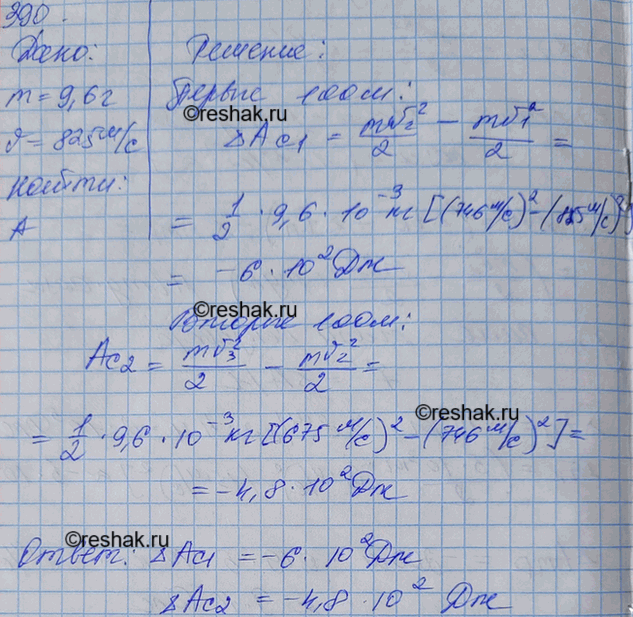 390.
Дано:
Решение:
m = 9,6 г
Первые 100 м:
©reshak.ru
υ = 825 м/с
ΔAc1 = mυ2²/2 − mυ1²/2 =
Найти:
A
= 1/2 · 9,6 · 10⁻³ кг [(746 м/с)² − (825 м/с)²]
= −6 · 10² Дж
©reshak.ru
Вторые 100 м:
Ac2 = mυ3²/2 − mυ2²/2 =
©reshak.ru
= 1/2 · 9,6 · 10⁻³ кг [(675 м/с)² − (746 м/с)²] =
= −4,8 · 10² Дж
©reshak.ru
Ответ: ΔAc1 = −6 · 10² Дж
ΔAc2 = −4,8 · 10² Дж